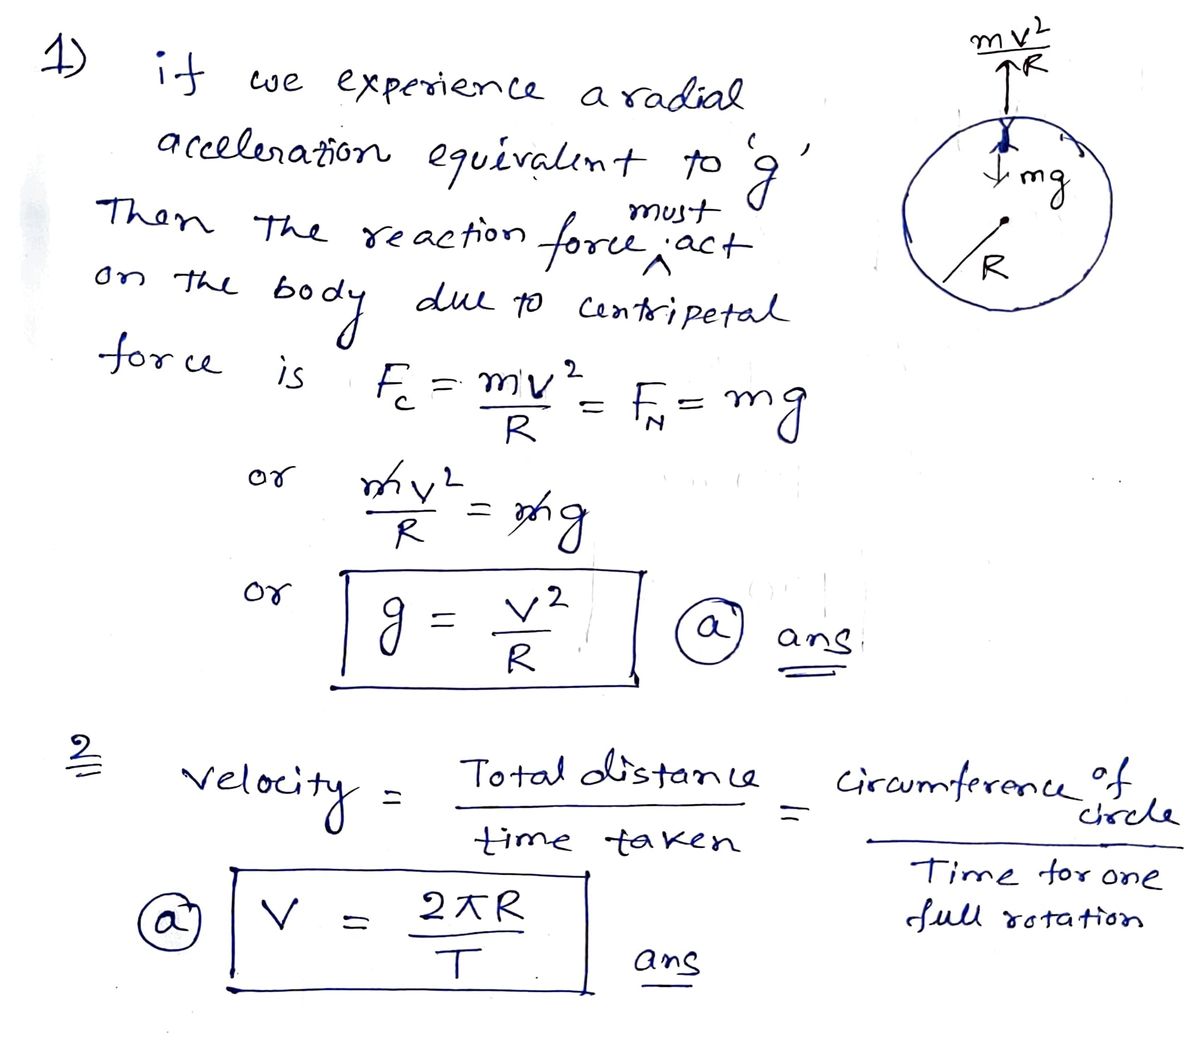 1) if we experience a radial
acceleration equivalent to 'g'
Then the reaction force must act
on the body due to centripetal
force is F_c = mv²/R = F_N = mg
or mv²/R = mg
or g = v²/R (a) ans
mv²/R
mg
R
2 velocity = Total distance / time taken = circumference of circle / Time for one full rotation
(a) V = 2πR/T ans